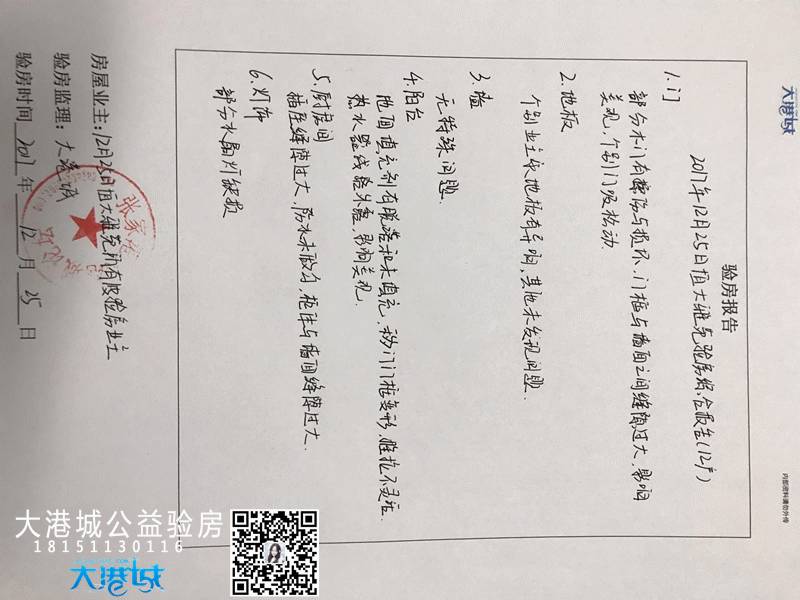 大港城
内部资料请勿外传
验房报告
2017年12月25日恒大雅苑验房综合报告(12户)
1.门
部分木门有擦伤与损坏、门框与墙面之间缝隙过大、影响
美观、个别门吸松动.
2.地板
个别业主家地板有异响、其他未发现问题.
3.墙
无特殊问题.
4.阳台
地面填充剂有脱落和未填充、移门门框变形、推拉不灵活.
热水器线路外露、影响美观.
5.厨房间
插座缝隙过大、防水未做勾、柜体与墙面缝隙过大.
6.灯饰
部分水晶灯缺损
房屋业主:12月25日恒大雅苑所有验房业主
验房监理:大港城
验房时间 2017 年 12 月 25 日
张家
大港城公益验房
18151130116
大港城